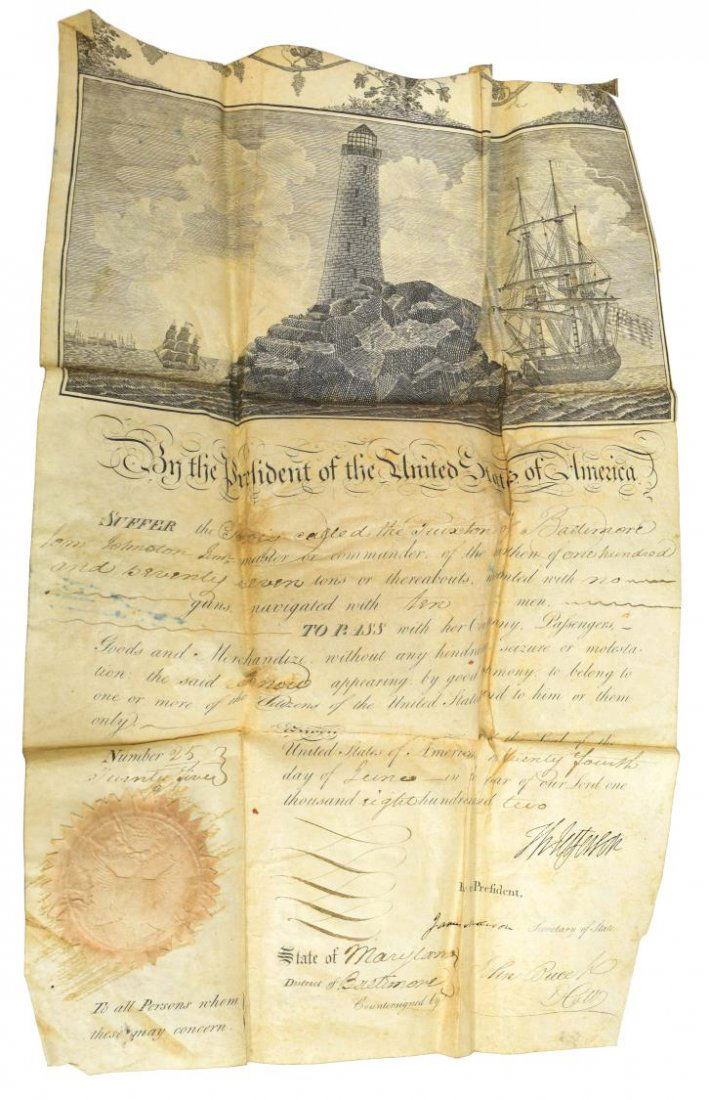 By the President of the United States of America
SUFFER the called the of Baltimore
Johnston master or commander of the burthen of one hundred
and seventy seven tons or thereabouts, mounted with no
guns, navigated with ten men,
TO PASS with her Company, Passengers,
Goods and Merchandize, without any hindrance seizure or molesta-
tion: the said appearing by good testimony, to belong to
one or more of the Citizens of the United States and to him or them
only
the Seal of the
Number 25
Twenty five
United States of America, twenty fourth
day of June in the year of our Lord one
thousand eight hundred two
Th Jefferson
By the President,
James Madison Secretary of State.
State of Maryland
District of Baltimore
Countersigned by
To all Persons whom
these may concern